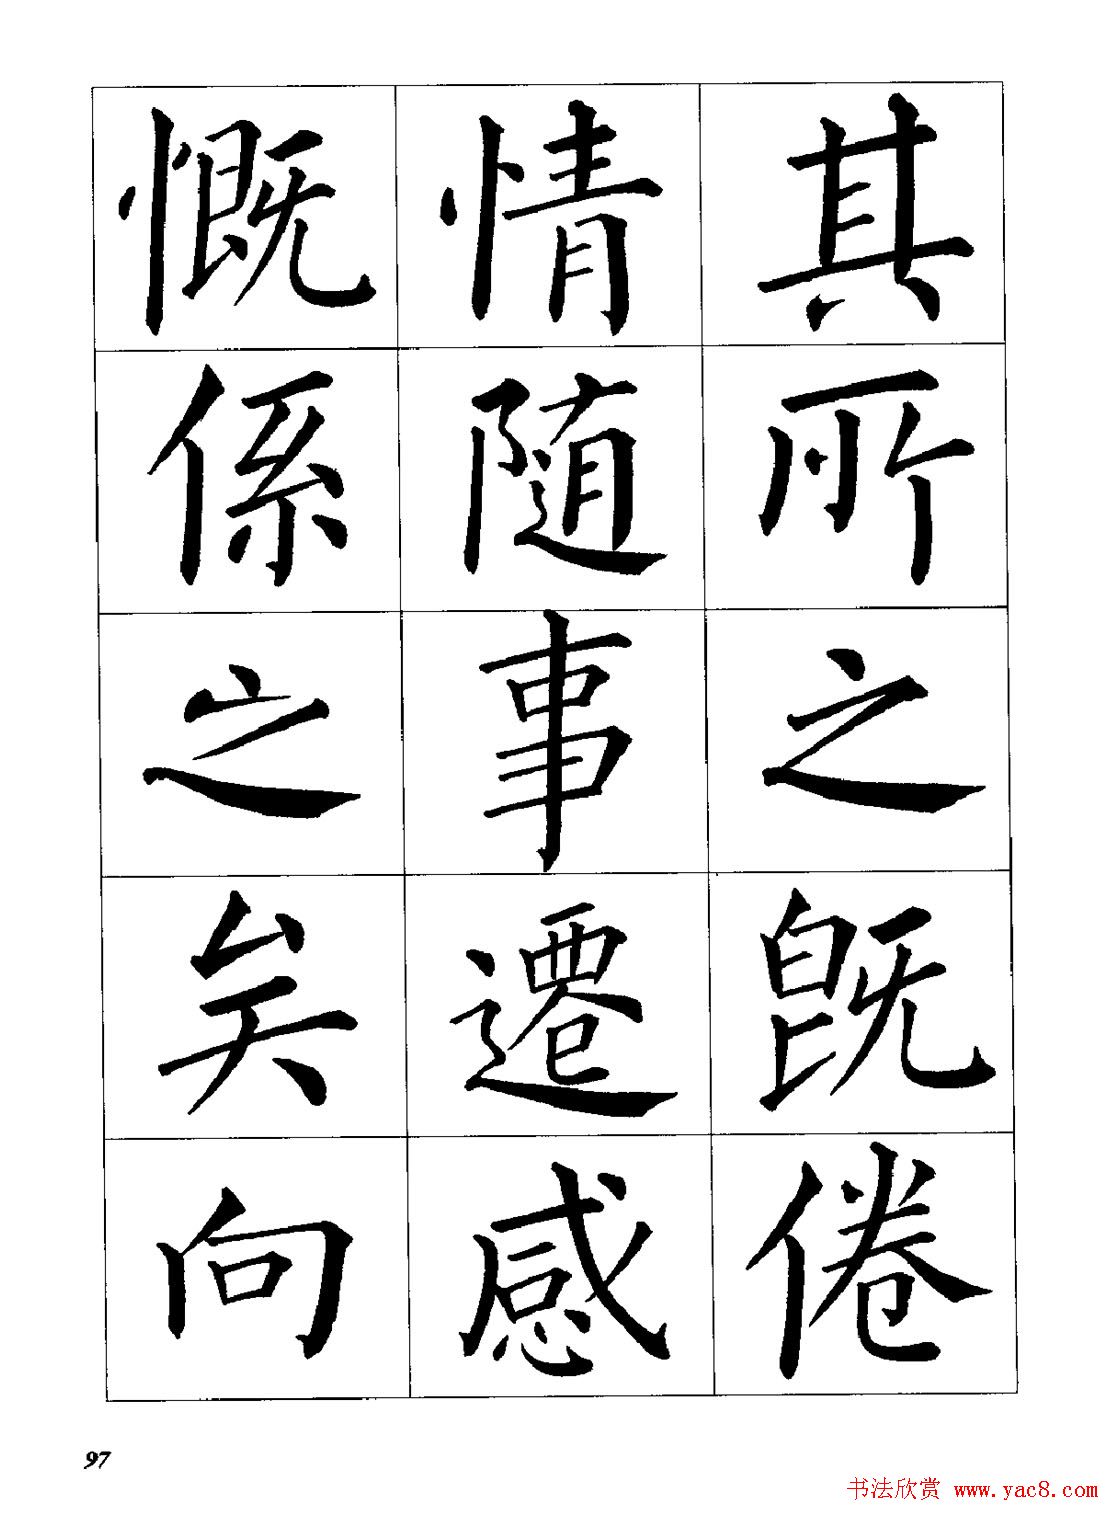 其所之既倦
情随事遷感
慨係之矣向
97
书法欣赏 www.yac8.com